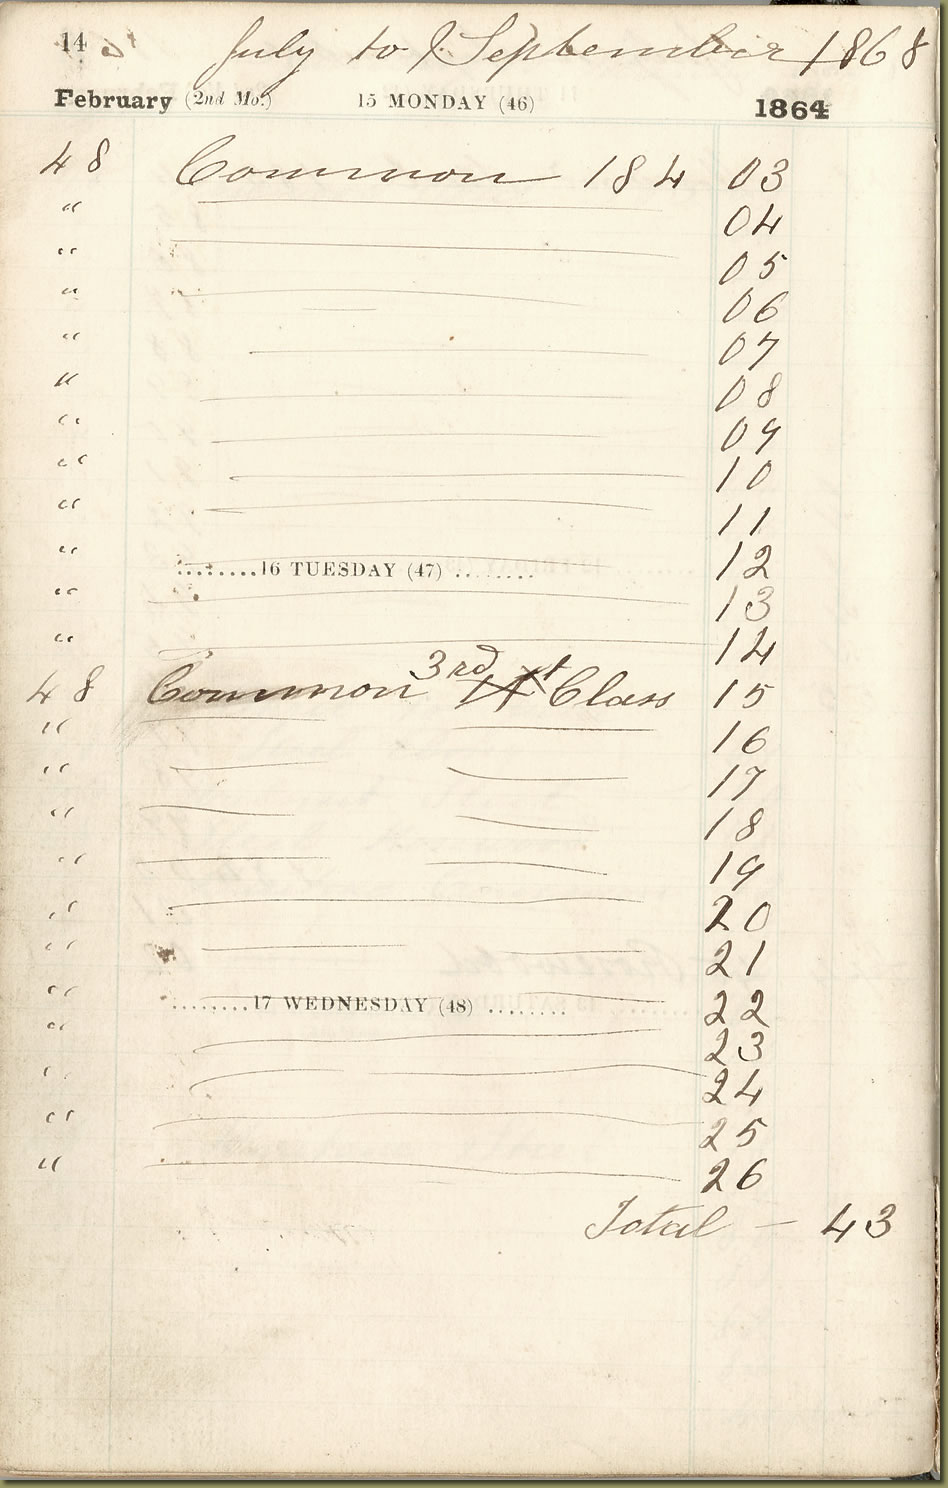 14 July to September 1868
February (2nd Mo.) 15 MONDAY (46) 1864
48 Common 184 03
" 04
" 05
" 06
" 07
" 08
" 09
" 10
" 11
" 12
16 TUESDAY (47)
" 13
" 14
48 Common 3rd 1st Class 15
" 16
" 17
" 18
" 19
" 20
" 21
" 22
17 WEDNESDAY (48)
" 23
" 24
" 25
" 26
Total — 43